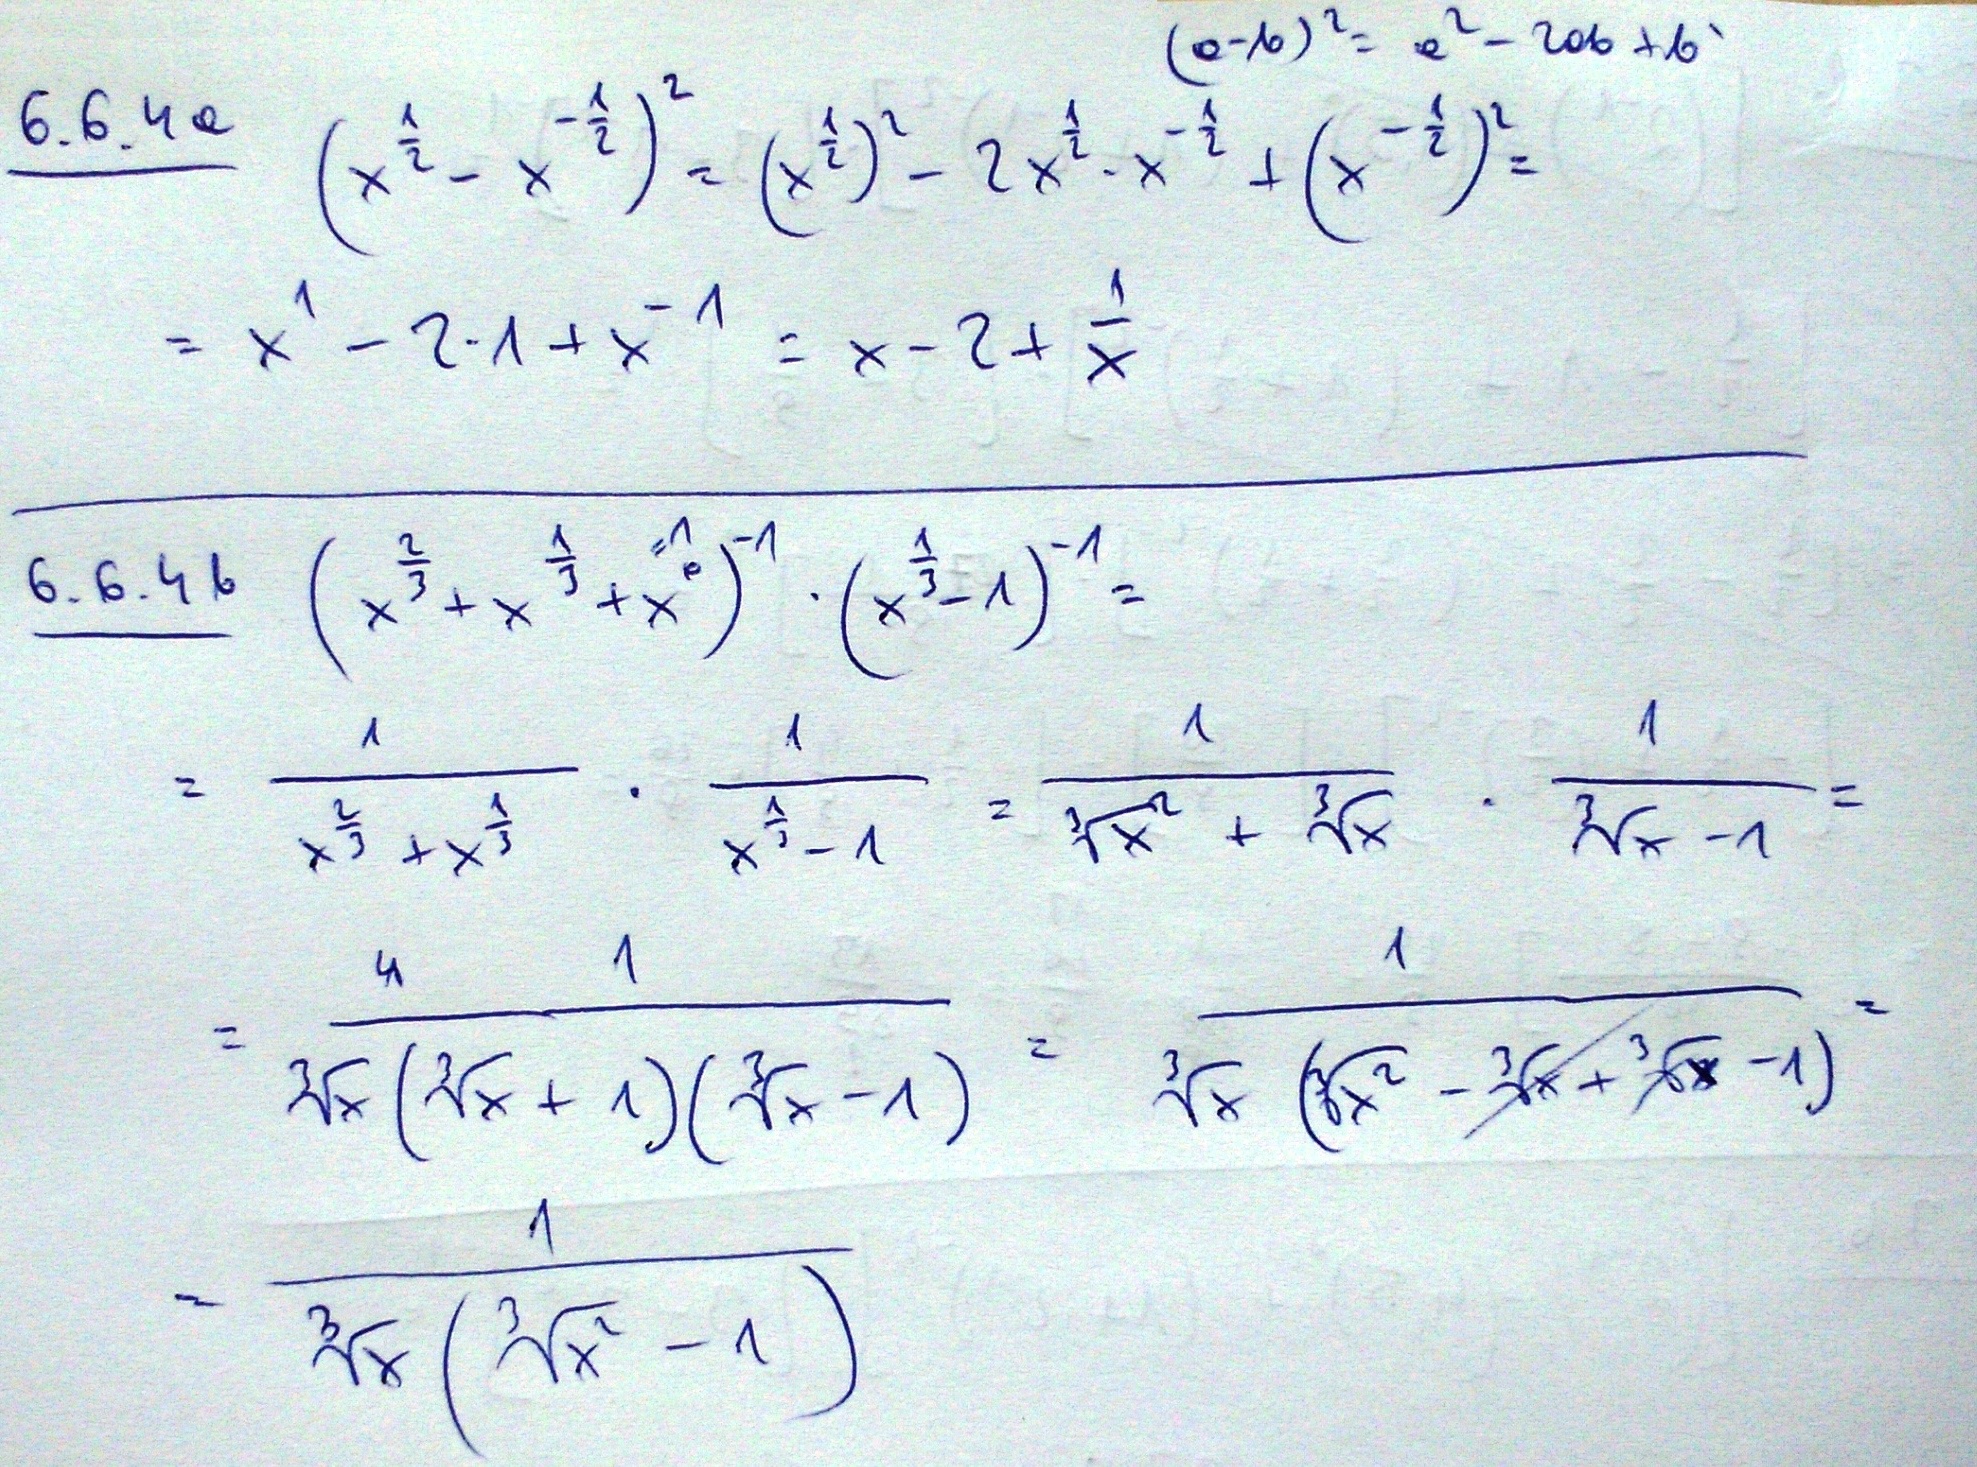 (a-b)² = a² - 2ab + b²
6.6.4a (x^{1/2} - x^{-1/2})² = (x^{1/2})² - 2x^{1/2} · x^{-1/2} + (x^{-1/2})² =
= x¹ - 2·1 + x^{-1} = x - 2 + 1/x
6.6.4b (x^{2/3} + x^{1/3} + x⁰)^{-1} · (x^{1/3} - 1)^{-1} =
= 1/(x^{2/3} + x^{1/3}) · 1/(x^{1/3} - 1) = 1/(∛x² + ∛x) · 1/(∛x - 1) =
= 1/(∛x(∛x + 1)(∛x - 1)) = 1/(∛x(∛x² - ∛x + ∛x - 1)) =
= 1/(∛x(∛x² - 1))